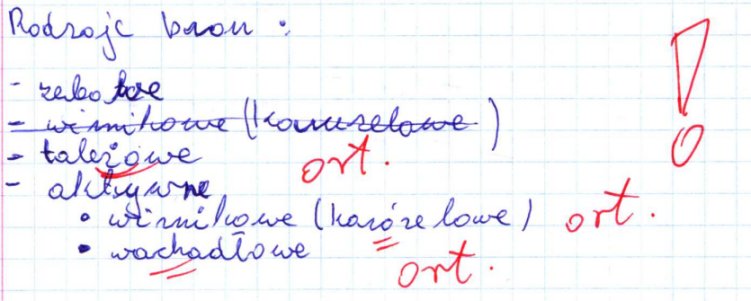 Rodzaje bron :
- zebowe
- wirnikowe (karuzelowe)
- tależowe ort. !
- aktywne
• wirnikowe (karózelowe) ort.
• wachadłowe ort.